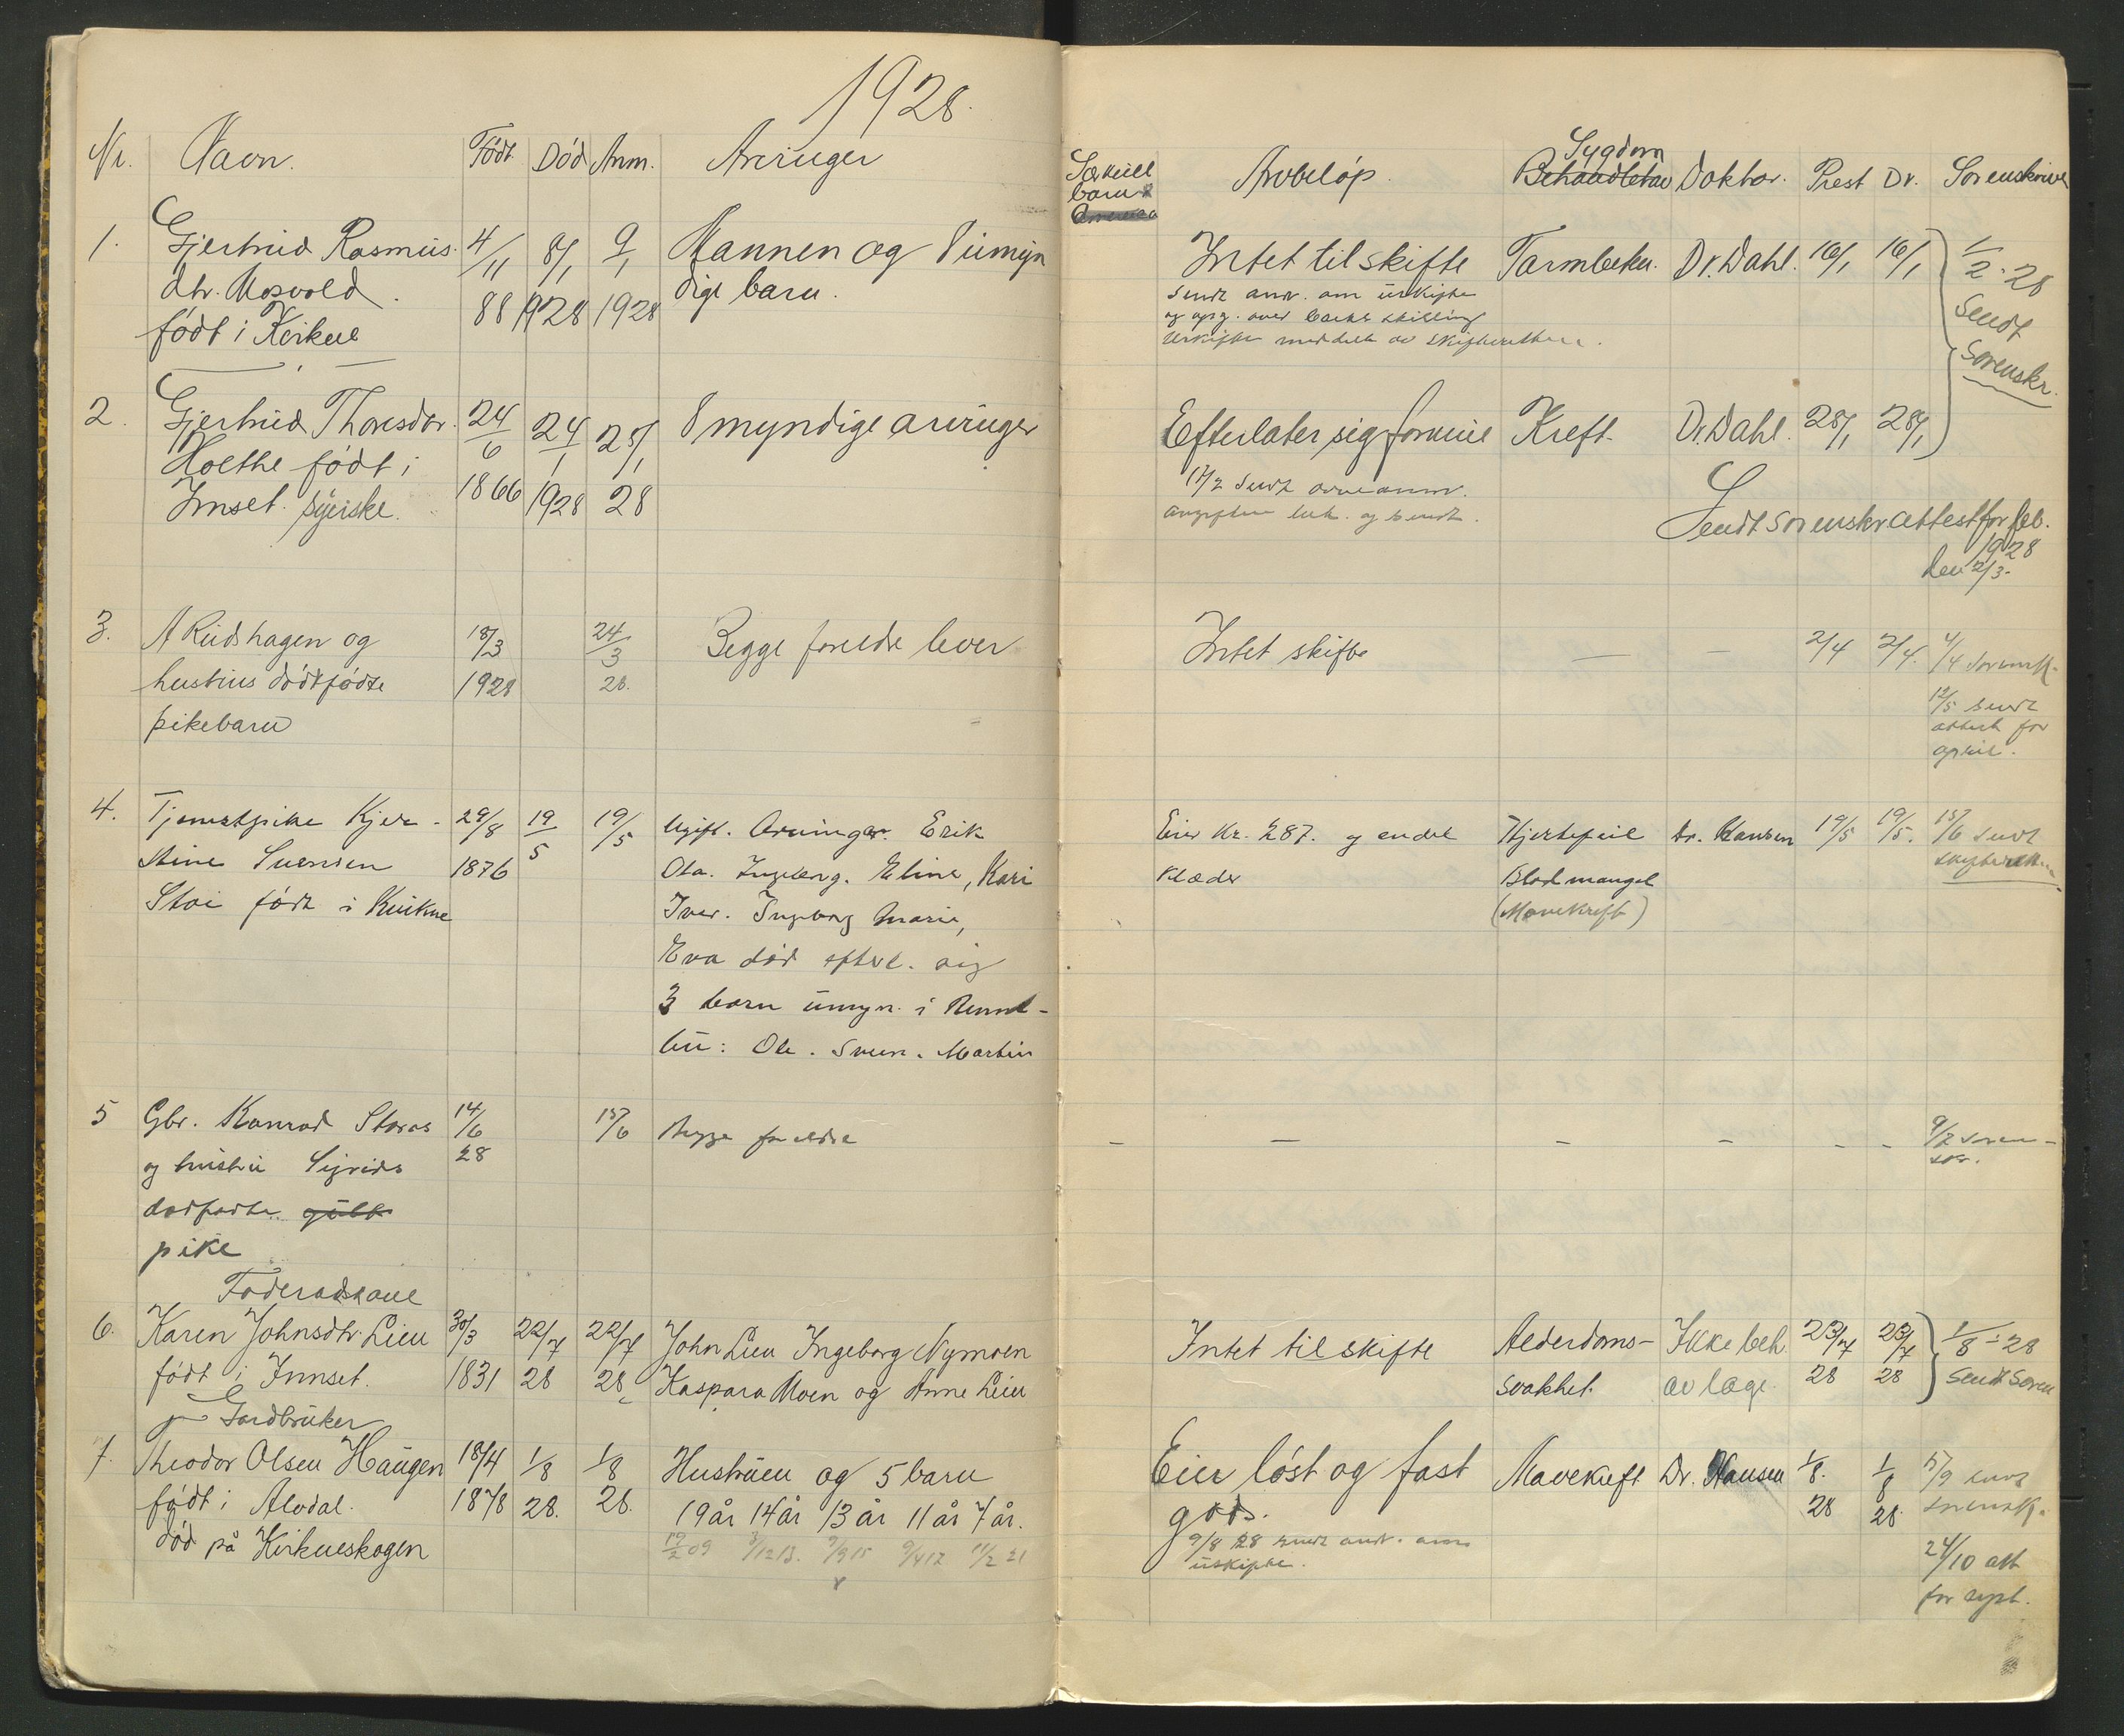 1928.
Nr. Navn. Født Død Anm. Arvinger
1. Gjertrud Rasmus- 4/11 8/1 9/1 Mannen og 8 umyn
dtr. Mosvold 88 1928 1928 dige barn.
født i Kvikne
2. Gjertrud Thoresdtr. 24/6 24/1 25/1 8 myndige arvinger
Holthe født i
Innset. syerske. 1866 1928 28
3. A Rudshagen og 18/3 24/3 Begge foreldre lever
hustrus dødfødte 1928 28.
pikebarn
4. Tjenestpike Kjer- 29/8 19/5 19/5 Ugift. Arvinger. Erik
stine Svendsen 1876 Ola. Ingebrg. Eline, Kari
Stai født i Kvikne Iver. Ingeborg Marie,
Eva død efterl. sig
3 barn umyn. i Renne-
bu: Ole. Sven. Martin
5 Gbr. Konrad Storaas 14/6 15/6 Begge foreldre
og hustru Sigrids 28
dødfødte gutt
pike
Føderadskone
6. Karen Johnsdtr. Lien 30/3 22/7 22/7 John Lien Ingeborg Nymoen
født i Innset. 1831 28 28 Kaspara Moen og Anne Lien
Gardbruker
7. Theodor Olsen Haugen 18/4 1/8 1/8 Hustruen og 5 barn
født i Alvdal. 1878 28. 28. 19 år 14 år 13 år 11 år 7 år.
død på Kvikneskogen 19/2 09 3/12 13. 9/9 15 9/4 17 11/2 21
Særkull
barn
Sygdom
Arvbeløp. Behandlet av Doktor. Prest Dr. Sorenskriver
Intet til skifte Tarmbeten. Dr. Dahl. 16/1 16/1 1/2. 28
sendt andr. om uskifte
og opg. over barnas skilling
Uskifte meddelt av skifteretten.
Sendt
Sorenskr.
Efterlater sig formue Kreft. Dr. Dahl. 28/1 28/1
17/2 sendt arveanm.
avgiften bet. og sendt.
Sendt sorenskr attest for feb.
1928
den 2/3.
Intet skifte — — 2/4 2/4. 4/4 sorensk.
12/5 sendt
attest for
april.
Eier Kr. 287. og endel Hjertefeil Dr. Hansen 19/5 19/5. 15/6 sendt
klæder Blodmangel skifteretten
(Mavekreft)
– – – – – – 9/7 soren-
skr.
Intet til skifte Alderdoms- Ikke beh. 23/7 23/7 1/8 - 28
svakhet. av læge. 28 28 Sendt Soren
Eier løst og fast Mavekreft Dr. Hansen 1/8. 1/8 5/9 sendt
gods. 28 28. sorensk.
9/8 28 sendt andr. om
uskifte.
24/10 att
for sept.